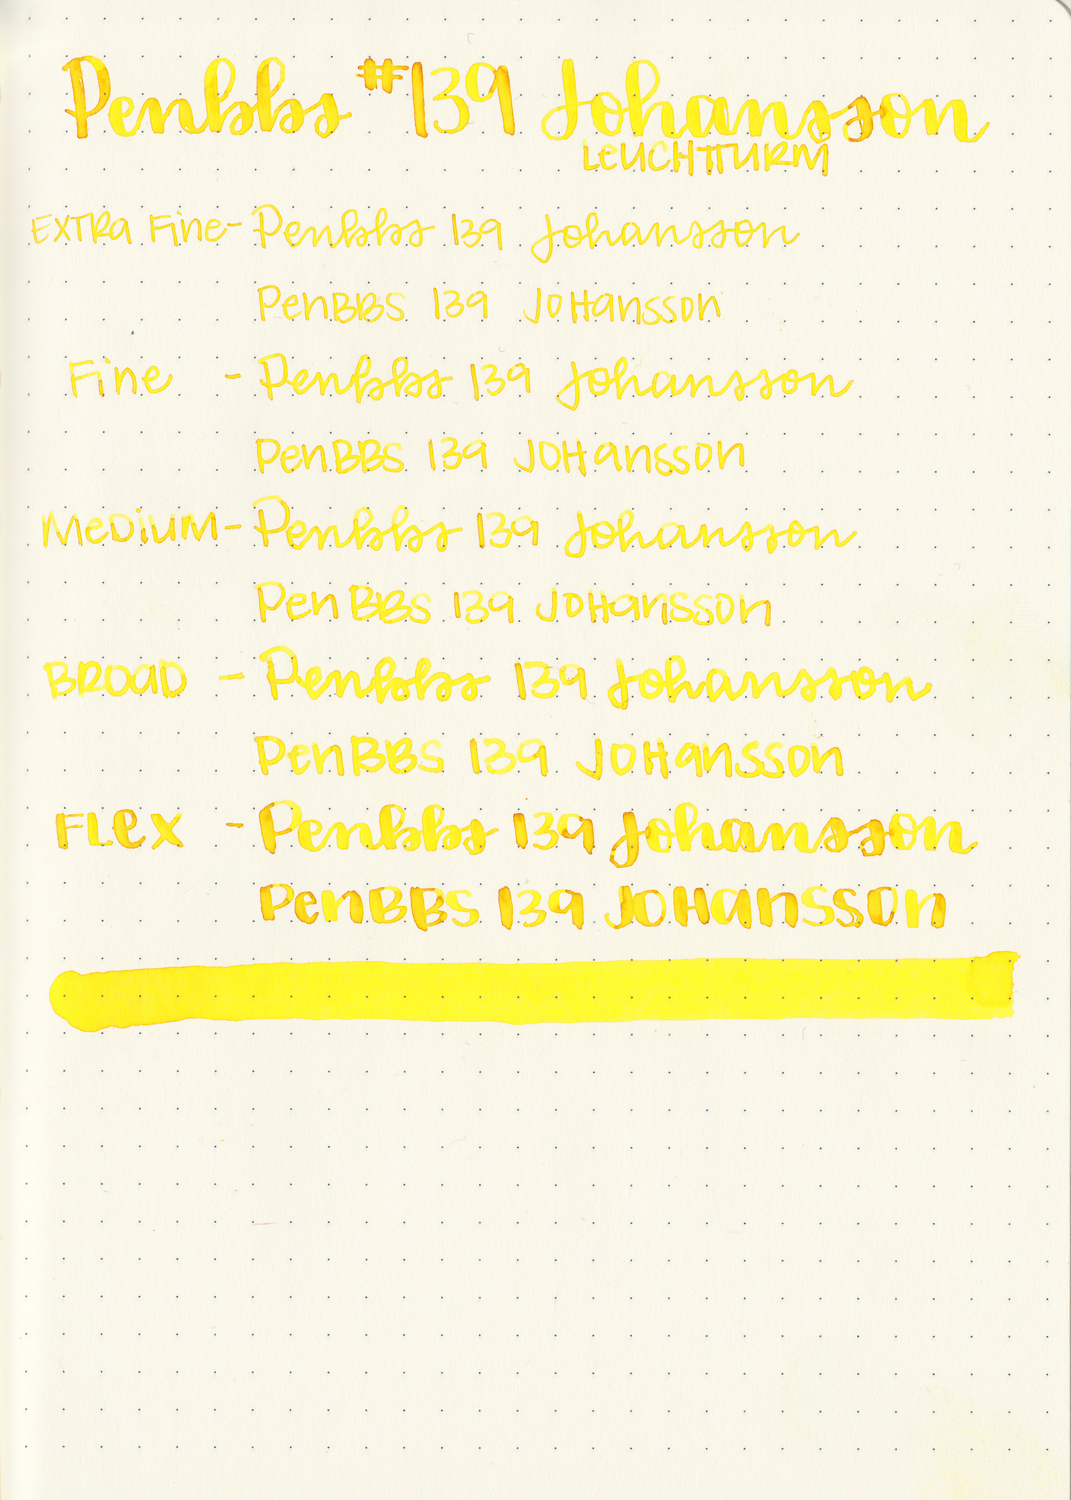 Penbbs #139 Johansson
LEUCHTTURM
EXTRA Fine - Penbbs 139 Johansson
PenBBS 139 JOHansson
Fine - Penbbs 139 Johansson
PenBBS 139 JOHansson
MeDiUM - Penbbs 139 Johansson
PenBBS 139 JOHansson
BROAD - Penbbs 139 Johansson
PenBBS 139 JOHansson
FLex - Penbbs 139 Johansson
PenBBS 139 JOHansson